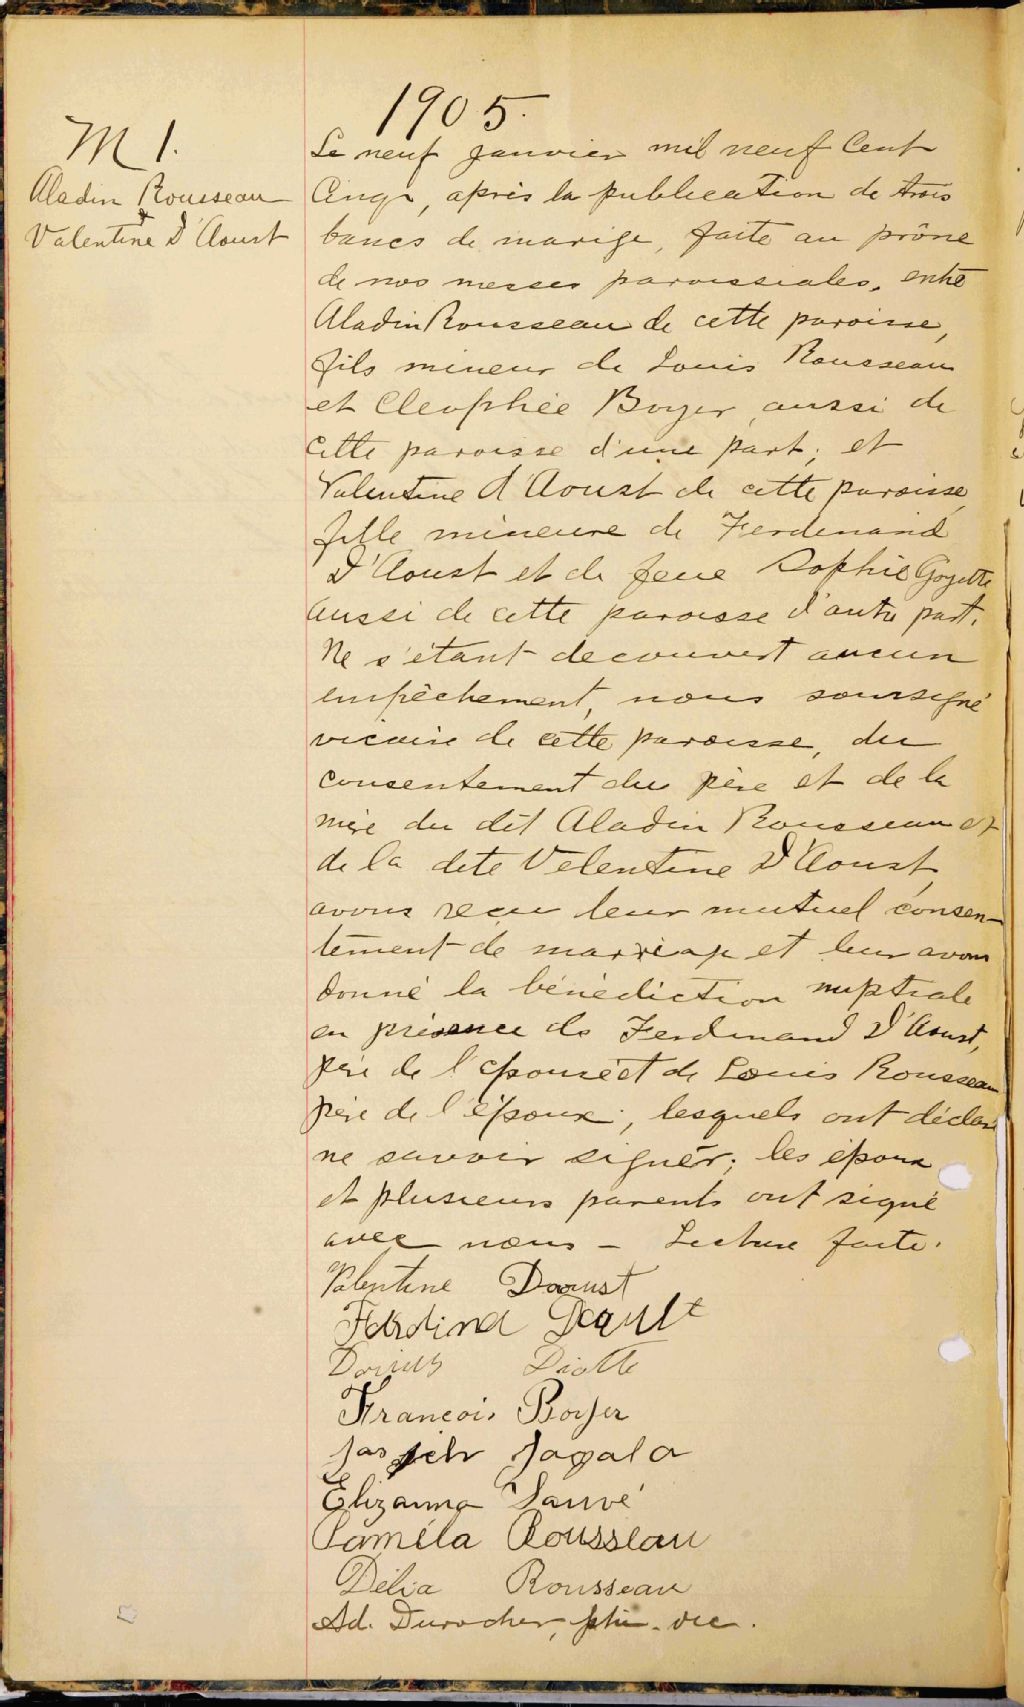 1905.
M 1.
Aladin Rousseau
&
Valentine D'Aoust
Le neuf janvier mil neuf Cent
Cinq, après la publication de trois
bancs de marige, faite au prône
de nos messes paroissiales, entre
Aladin Rousseau de cette paroisse,
fils mineur de Louis Rousseau
et Cleophée Boyer, aussi de
cette paroisse d'une part; et
Valentine d'Aoust de cette paroisse,
fille mineure de Ferdinand
D'Aoust et de feue Sophie Goyette
aussi de cette paroisse d'autre part.
Ne s'étant decouvert aucun
empêchement, nous soussigné
vicaire de cette paroisse, du
consentement du père et de la
mère du dit Aladin Rousseau et
de la dite Velentine D'Aoust,
avons reçu leur mutuel consen-
tement de marriage et leur avons
donné la bénédiction nuptiale
en présence de Ferdinand D'Aoust,
père de l'épouse et de Louis Rousseau
père de l'époux; lesquels ont déclaré
ne savoir signer; les époux
et plusieurs parents ont signé
avec nous – Lecture faite.
Valentine Daoust
Ferdina
Darius Diotte
Francois Boyer
Elizanna Sauvé
Paméla Rousseau
Délia Rousseau
Ad. Durocher, ptre. vic.